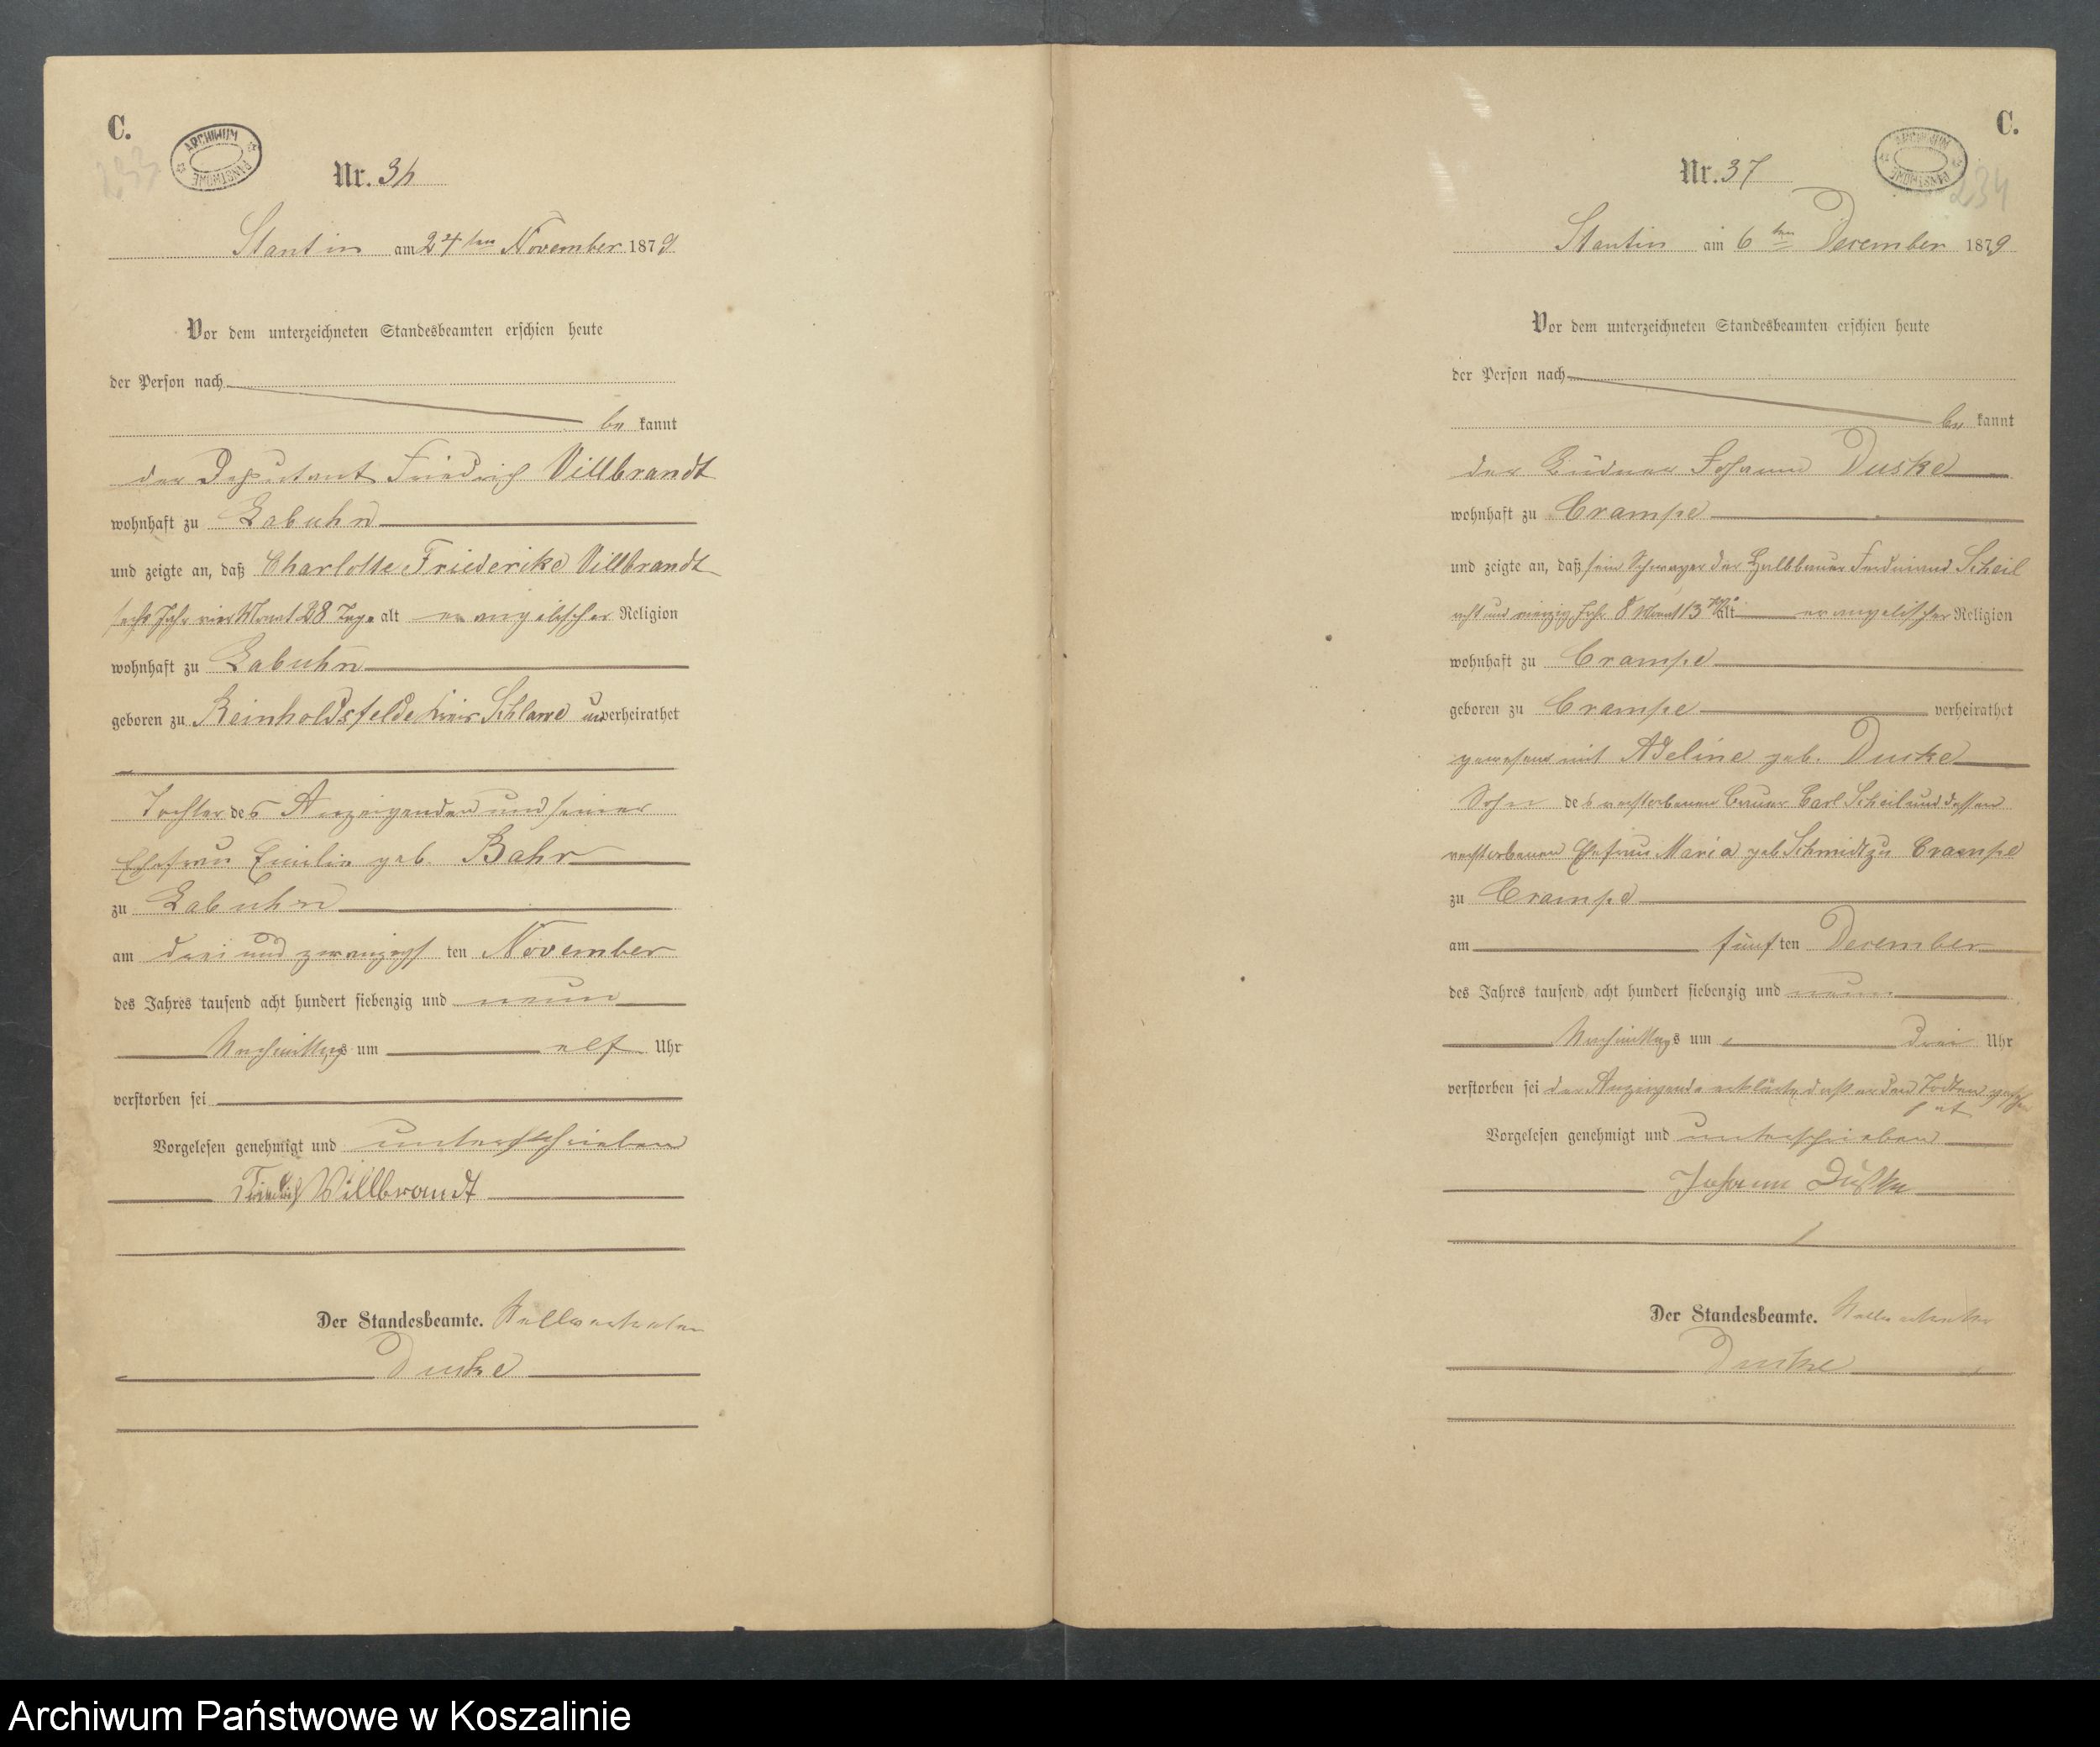 C.
ARCHIWUM PAŃSTWOWE
233
Nr. 36
Stantin am 24ten November 1879
Vor dem unterzeichneten Standesbeamten erschien heute
der Person nach
be kannt
der Deputant Friedrich Villbrandt
wohnhaft zu Labuhn
und zeigte an, daß Charlotte Friederike Villbrandt
sechs Jahr vier Monat 28 Tage alt evangelischer Religion
wohnhaft zu Labuhn
geboren zu Reinholdsfelde Kreis Schlawe unverheirathet
Tochter des Anzeigenden und seiner
Ehefrau Emilie geb. Bahr
zu Labuhn
am drei und zwanzigs ten November
des Jahres tausend acht hundert siebenzig und neun
Nachmittags um elf Uhr
verstorben sei
Vorgelesen genehmigt und unterschrieben
Friedrich Willbrandt
Der Standesbeamte.
Duske
C.
ARCHIWUM PAŃSTWOWE
234
Nr. 37
Stantin am 6ten December 1879
Vor dem unterzeichneten Standesbeamten erschien heute
der Person nach
be kannt
der Büdner Johann Duske
wohnhaft zu Crampe
und zeigte an, daß sein Schwager der Halbbauer Ferdinand Scheil
acht und vierzig Jahr 8 Monat 13 Tage alt evangelischer Religion
wohnhaft zu Crampe
geboren zu Crampe verheirathet
gewesen mit Adeline geb. Duske
Sohn des verstorbenen Bauer Carl Scheil und dessen
verstorbenen Ehefrau Maria geb Schmidt zu Crampe
zu Crampe
am fünf ten December
des Jahres tausend acht hundert siebenzig und neun
Nachmittags um drei Uhr
verstorben sei der Anzeigende erklärte, daß er den Todten gesehen
hat
Vorgelesen genehmigt und unterschrieben
Johann Duske
Der Standesbeamte.
Duske
Archiwum Państwowe w Koszalinie